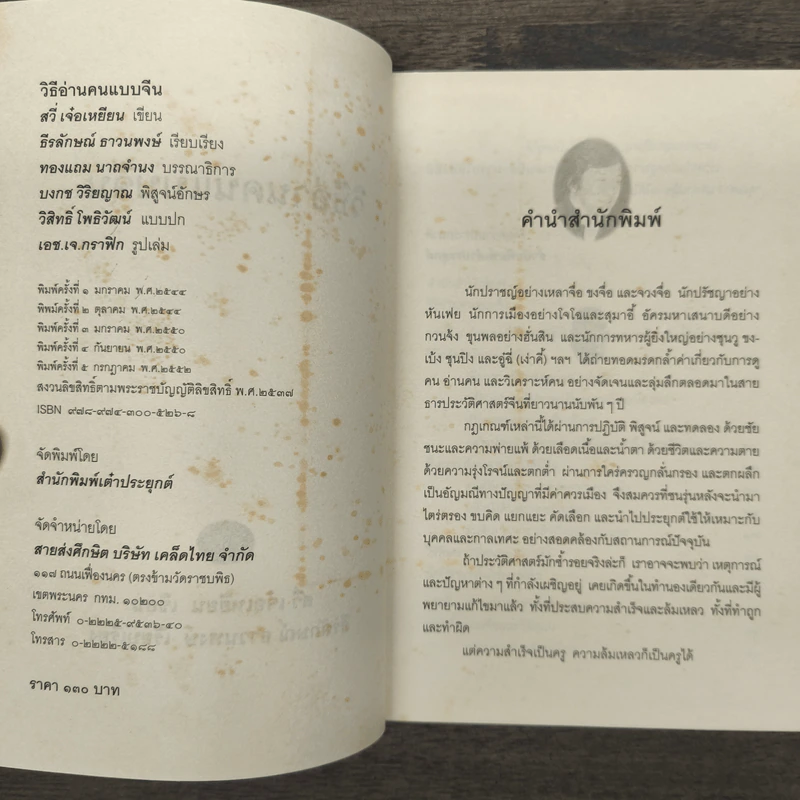 วิธีอ่านคนแบบจีน
สวี่ เจ๋อเหยียน เขียน
ธีรลักษณ์ ธาวนพงษ์ เรียบเรียง
ทองแถม นาถจำนง บรรณาธิการ
บงกช วิริยญาณ พิสูจน์อักษร
วิสิทธิ์ โพธิวัฒน์ แบบปก
เอช.เจ.กราฟิก รูปเล่ม
พิมพ์ครั้งที่ ๑ มกราคม พ.ศ.๒๕๔๔
พิมพ์ครั้งที่ ๒ ตุลาคม พ.ศ.๒๕๔๔
พิมพ์ครั้งที่ ๓ มกราคม พ.ศ.๒๕๕๐
พิมพ์ครั้งที่ ๔ กันยายน พ.ศ.๒๕๕๐
พิมพ์ครั้งที่ ๕ กรกฎาคม พ.ศ.๒๕๕๒
สงวนลิขสิทธิ์ตามพระราชบัญญัติลิขสิทธิ์ พ.ศ.๒๕๓๗
ISBN ๙๗๘-๙๗๔-๓๐๐-๕๒๖-๘
จัดพิมพ์โดย
สำนักพิมพ์เต๋าประยุกต์
จัดจำหน่ายโดย
สายส่งศึกษิต บริษัท เคล็ดไทย จำกัด
๑๑๗ ถนนเฟื่องนคร (ตรงข้ามวัดราชบพิธ)
เขตพระนคร กทม. ๑๐๒๐๐
โทรศัพท์ ๐-๒๒๒๕-๙๕๓๖-๔๐
โทรสาร ๐-๒๒๒๒-๕๑๘๘
ราคา ๑๓๐ บาท
คำนำสำนักพิมพ์
นักปราชญ์อย่างเหลาจื่อ ขงจื่อ และจวงจื่อ นักปรัชญาอย่าง
หันเฟย นักการเมืองอย่างโจโฉและสุมาอี้ อัครมหาเสนาบดีอย่าง
กวนจ้ง ขุนพลอย่างฮั่นสิน และนักการทหารผู้ยิ่งใหญ่อย่างซุนวู ขง-
เบ้ง ซุนปิง และอู๋ฉี่ (เง่าคี้) ฯลฯ ได้ถ่ายทอดมรดกล้ำค่าเกี่ยวกับการดู
คน อ่านคน และวิเคราะห์คน อย่างจัดเจนและลุ่มลึกตลอดมาในสาย
ธารประวัติศาสตร์จีนที่ยาวนานนับพัน ๆ ปี
กฎเกณฑ์เหล่านี้ได้ผ่านการปฏิบัติ พิสูจน์ และทดลอง ด้วยชัย
ชนะและความพ่ายแพ้ ด้วยเลือดเนื้อและน้ำตา ด้วยชีวิตและความตาย
ด้วยความรุ่งโรจน์และตกต่ำ ผ่านการใคร่ครวญกลั่นกรอง และตกผลึก
เป็นอัญมณีทางปัญญาที่มีค่าควรเมือง จึงสมควรที่ชนรุ่นหลังจะนำมา
ไตร่ตรอง ขบคิด แยกแยะ คัดเลือก และนำไปประยุกต์ใช้ให้เหมาะกับ
บุคคลและกาลเทศะ อย่างสอดคล้องกับสถานการณ์ปัจจุบัน
ถ้าประวัติศาสตร์มักซ้ำรอยจริงล่ะก็ เราอาจจะพบว่า เหตุการณ์
และปัญหาต่าง ๆ ที่กำลังเผชิญอยู่ เคยเกิดขึ้นในทำนองเดียวกันและมีผู้
พยายามแก้ไขมาแล้ว ทั้งที่ประสบความสำเร็จและล้มเหลว ทั้งที่ทำถูก
และทำผิด
แต่ความสำเร็จเป็นครู ความล้มเหลวก็เป็นครูได้